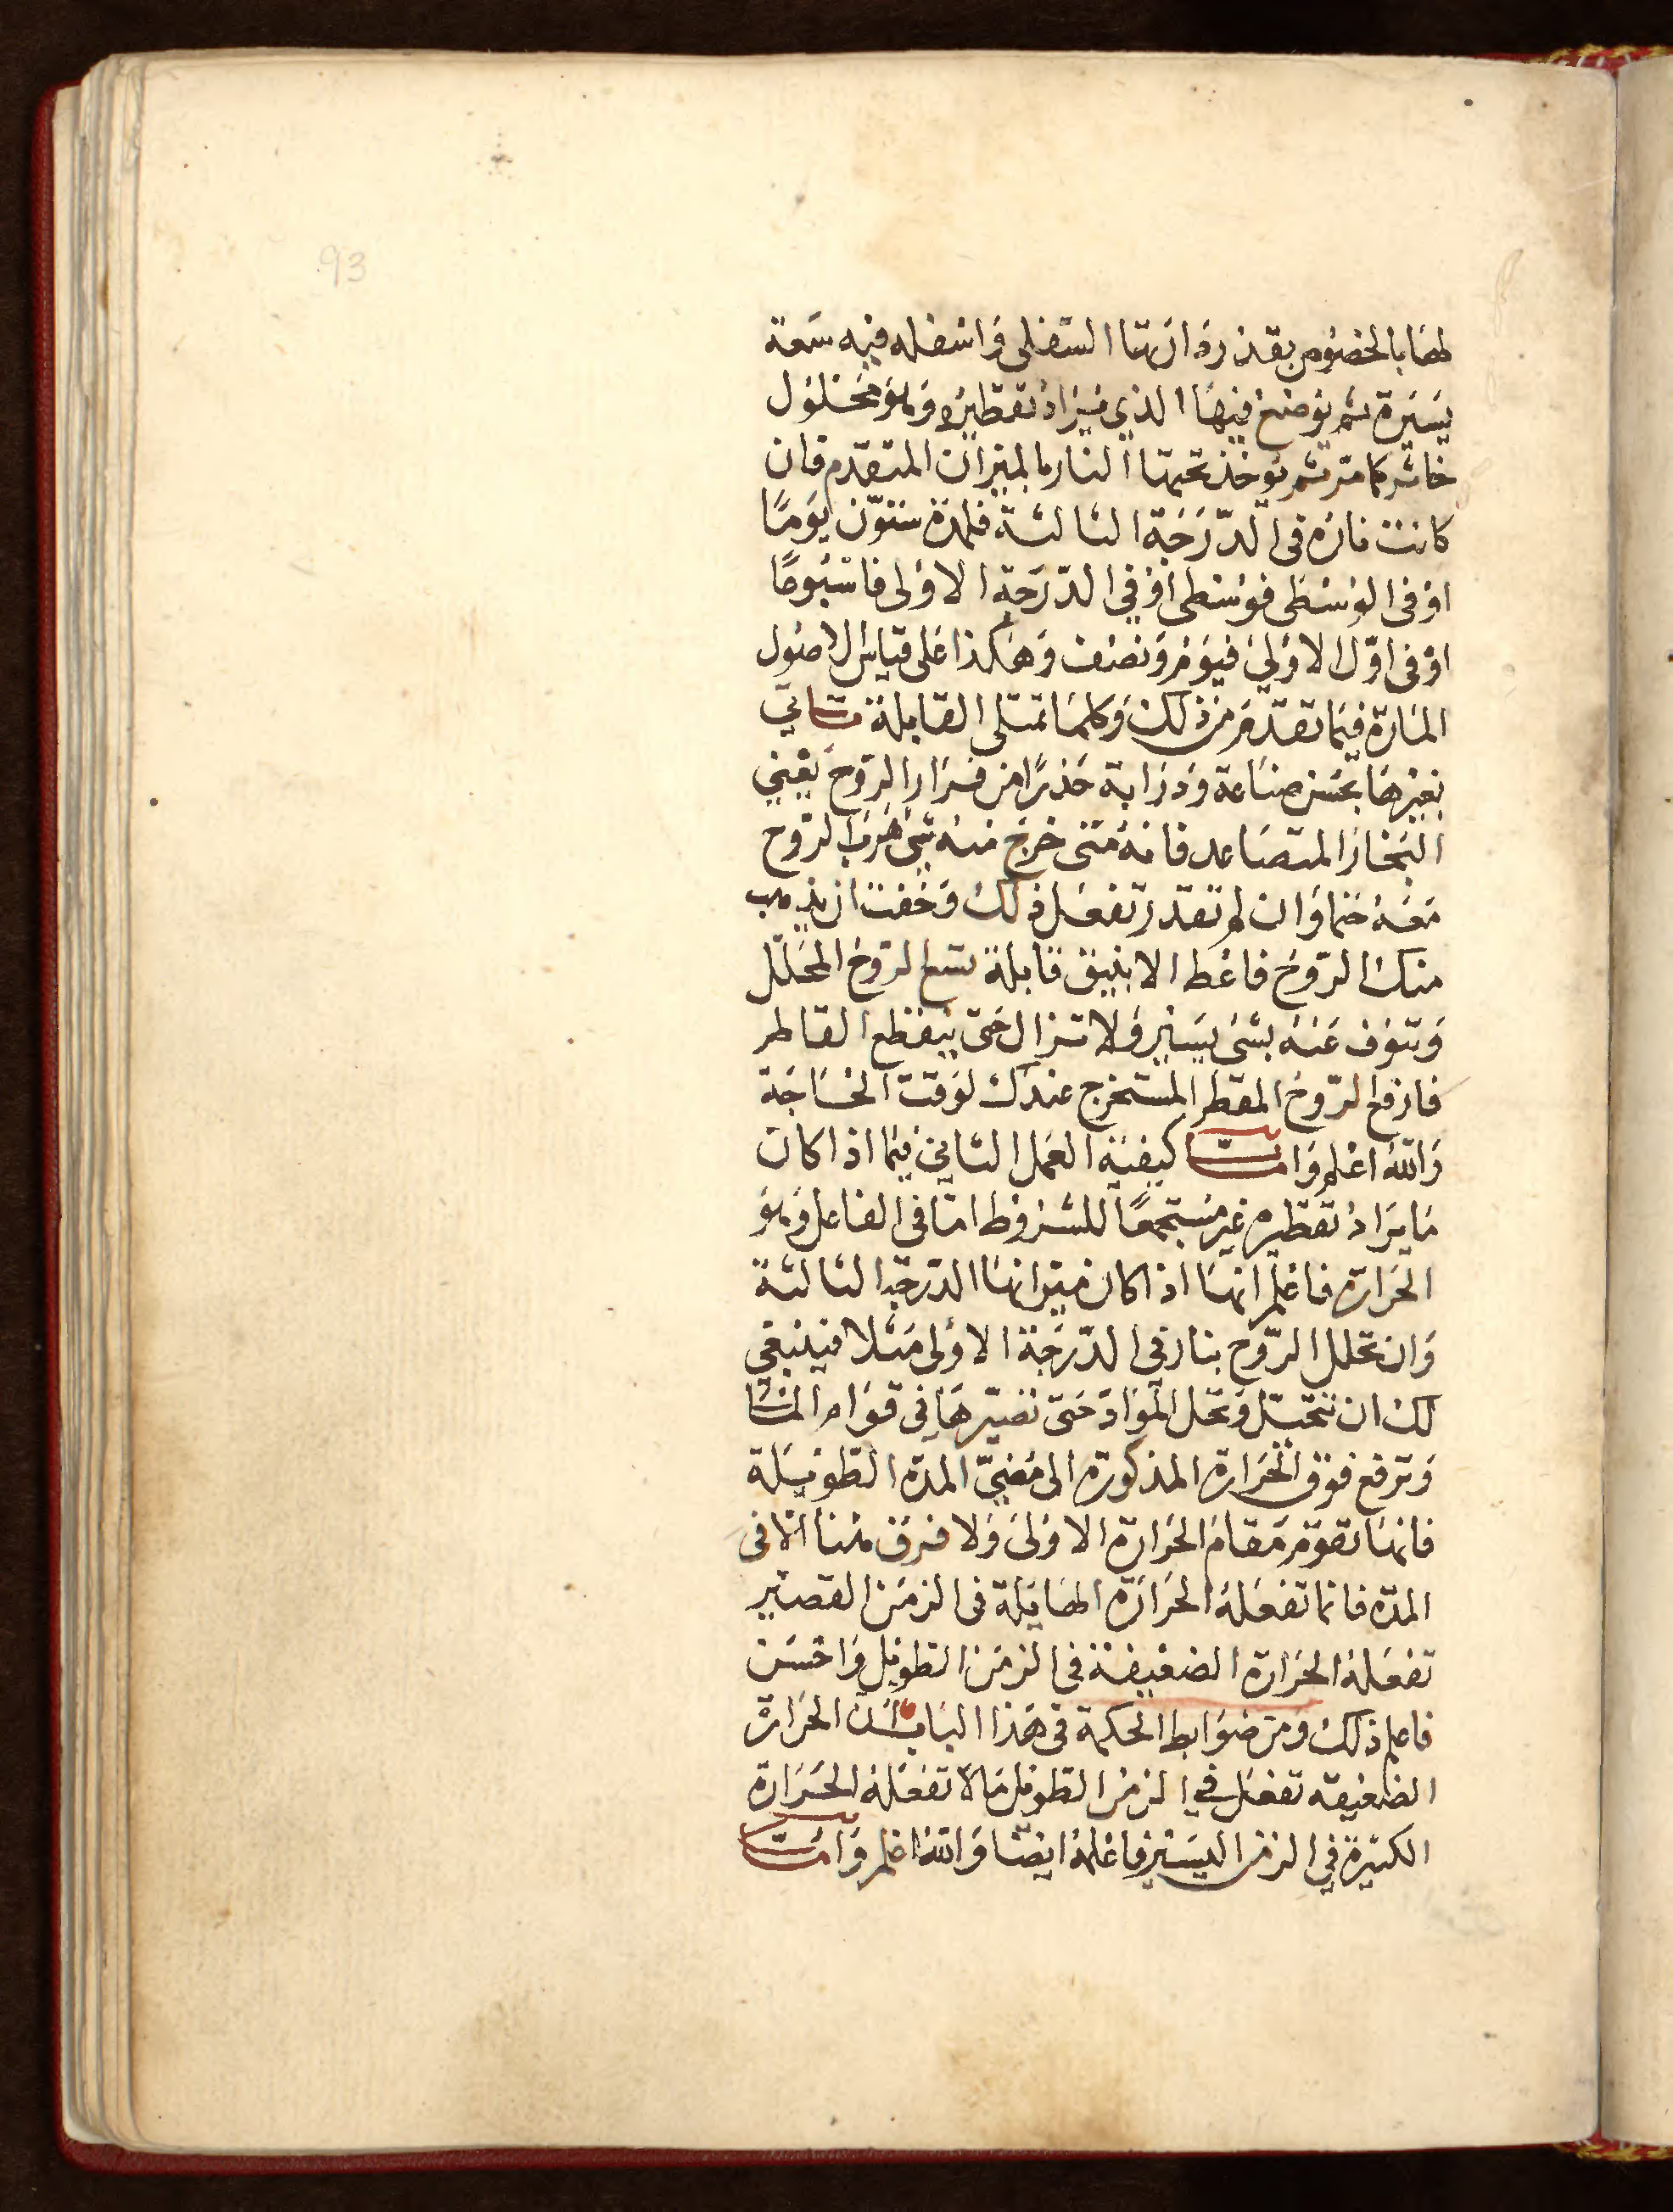 93
لها بالخصوص بقدر دوائرها السفلى واسفله فيه سعة
يسيرة ثم يوضع فيها الذي يراد تقطيره وهو محلول
خاثر كما مر ثم يوخذ تحتها النار بالميزان المتقدم فان
كانت ناره في الدرجة الثالثة فلمدة ستون يوما
او في الوسطى فوسطى او في الدرجة الاولى فاسبوعا
او في اول الاولى فيوم ونصف وهكذا على قياس الاصول
المارة فيما تقدم من ذلك وكلما تمتلى القابلة تاتي
بغيرها بحسن صناعة ودراية حذرا من فرار الروح يعني
البخار المتصاعد فانه متى خرج منه شي هرب الروح
معه حتما وان لم تقدر تفعل ذلك وخفت ان يذهب
منك الروح فاعط الانبيق قابلة تسع الروح المحلل
وتنوف عنه بشى يسير ولا تزال حتى ينقطع القاطر
فارفع الروح المقطر المستخرج عندك لوقت الحاجة
والله اعلم واما كيفية العمل الثاني فيما اذا كان
ما يراد تقطيره غير مستجمعا للشروط اما في الفاعل وهو
الحرارة فاعلم انها اذا كان ميزانها الدرجة الثالثة
وان تحلل الروح بنار في الدرجة الاولى مثلا فينبغي
لك ان تتحيل وتحل المواد حتى تصيرها في قوام الماء
وترفع فوق الحرارة المذكورة الى مضي المدة الطويلة
فانها تقوم مقام الحرارة الاولى ولا فرق هنا الا في
المدة فانما تفعله الحرارة الهايلة في الزمن القصير
تفعله الحرارة الضعيفة في الزمن الطويل واحسن
فاعلم ذلك ومن ضوابط الحكمة في هذا الباب ان الحرارة
الضعيفة تفعل في الزمن الطويل ما لا تفعله الحرارة
الكبيرة في الزمن اليسير فاعلمه ايضا والله اعلم واما